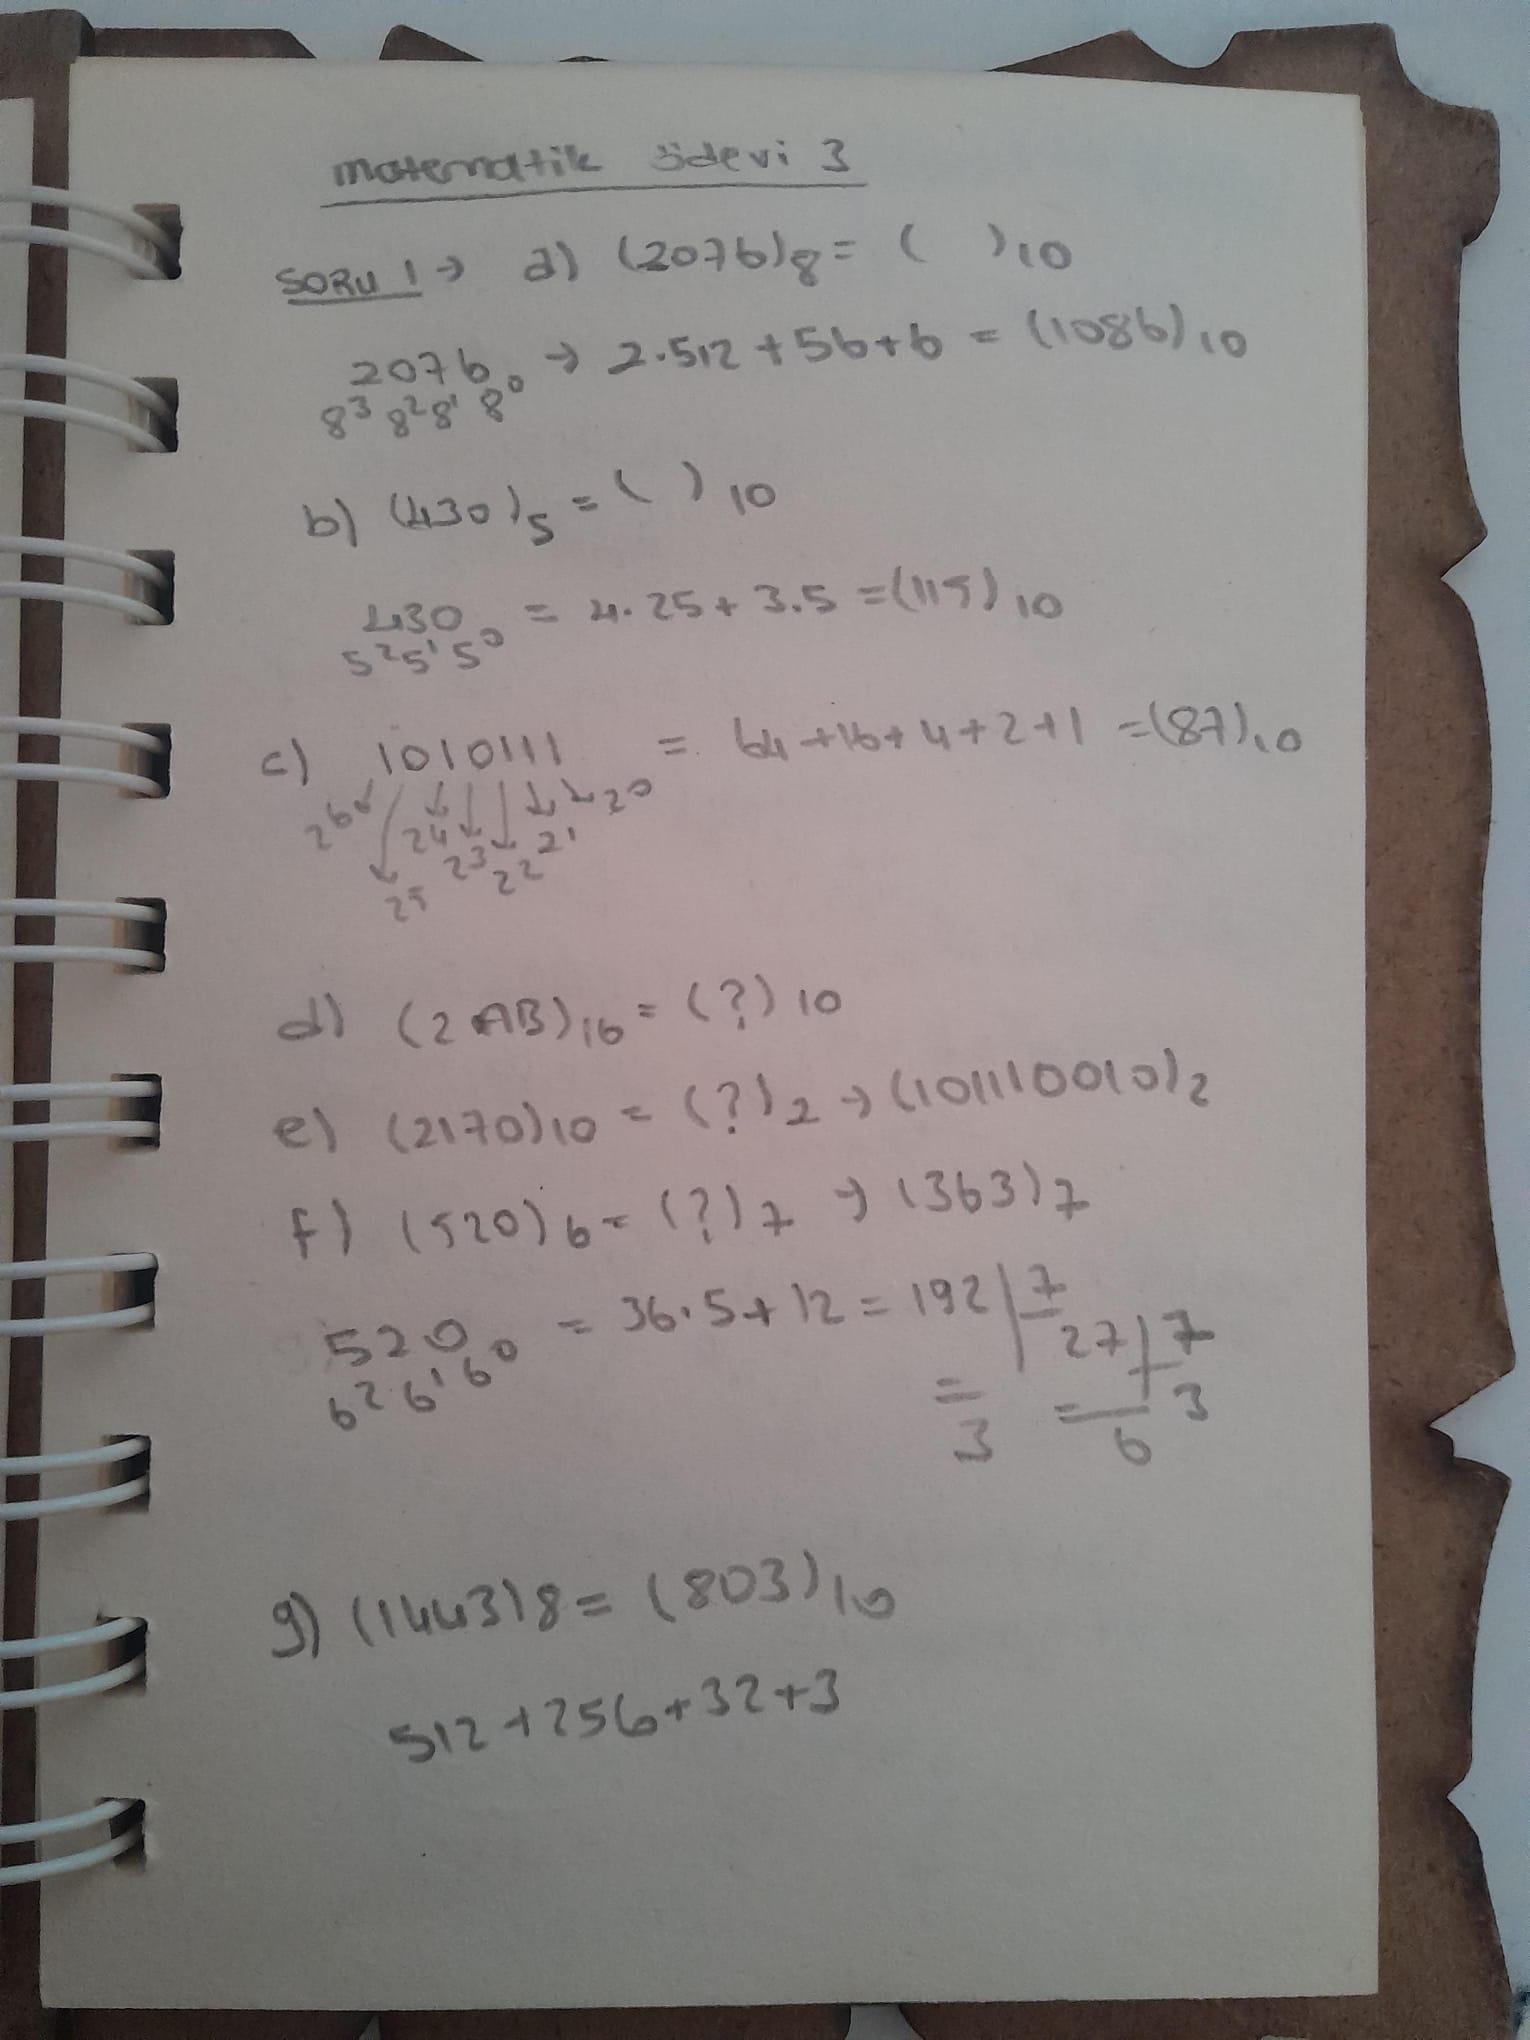 matematik ödevi 3
SORU 1 → a) (2076)8 = ( )10
2076 → 2.512 + 56 + 6 = (1086)10
8³ 8² 8¹ 8⁰
b) (430)5 = ( )10
430 = 4.25 + 3.5 = (115)10
5² 5¹ 5⁰
c) 1010111 = 64 + 16 + 4 + 2 + 1 = (87)10
2⁶ 2⁵ 2⁴ 2³ 2² 2¹ 2⁰
d) (2AB)16 = (?)10
e) (2170)10 = (?)2 → (101110010)2
f) (520)6 = (?)7 → (363)7
520 = 36.5 + 12 = 192 | 7
6² 6¹ 6⁰
27 | 7
= 3
= 6 3
g) (1443)8 = (803)10
512 + 256 + 32 + 3